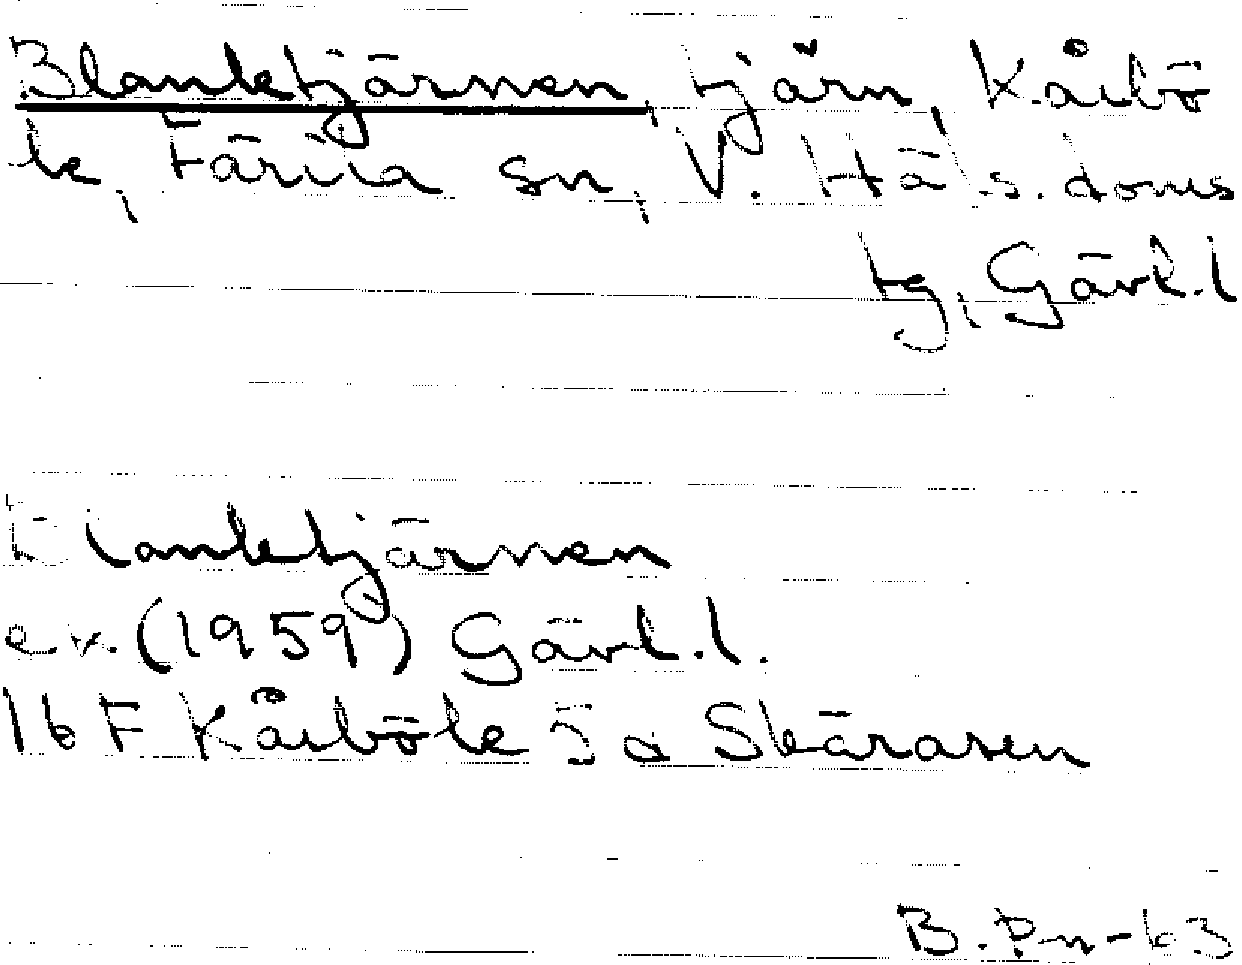 Blanktjärnen, tjärn, Kårbö
le, Färila sn, V. Häls. doms
tg, Gävl.l
Blanktjärnen
ex. (1959) Gävl.l.
16 F Kårböle 5 a Skåråsen
B. Pn-63